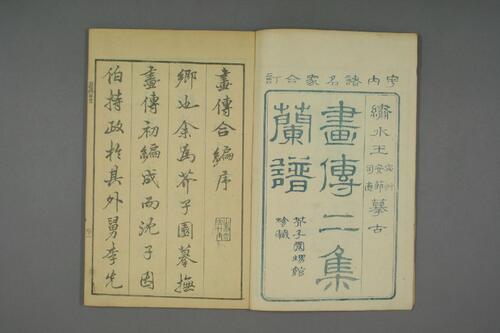 宇內諸名家合訂
繡水王宓艸安節司直摹古
畫傳二集
蘭譜
芥子園甥館
珍藏
畫傳合編序
鄉也余為芥子園摹撫
畫傳初編成而沈子因
伯持政於其外舅李先